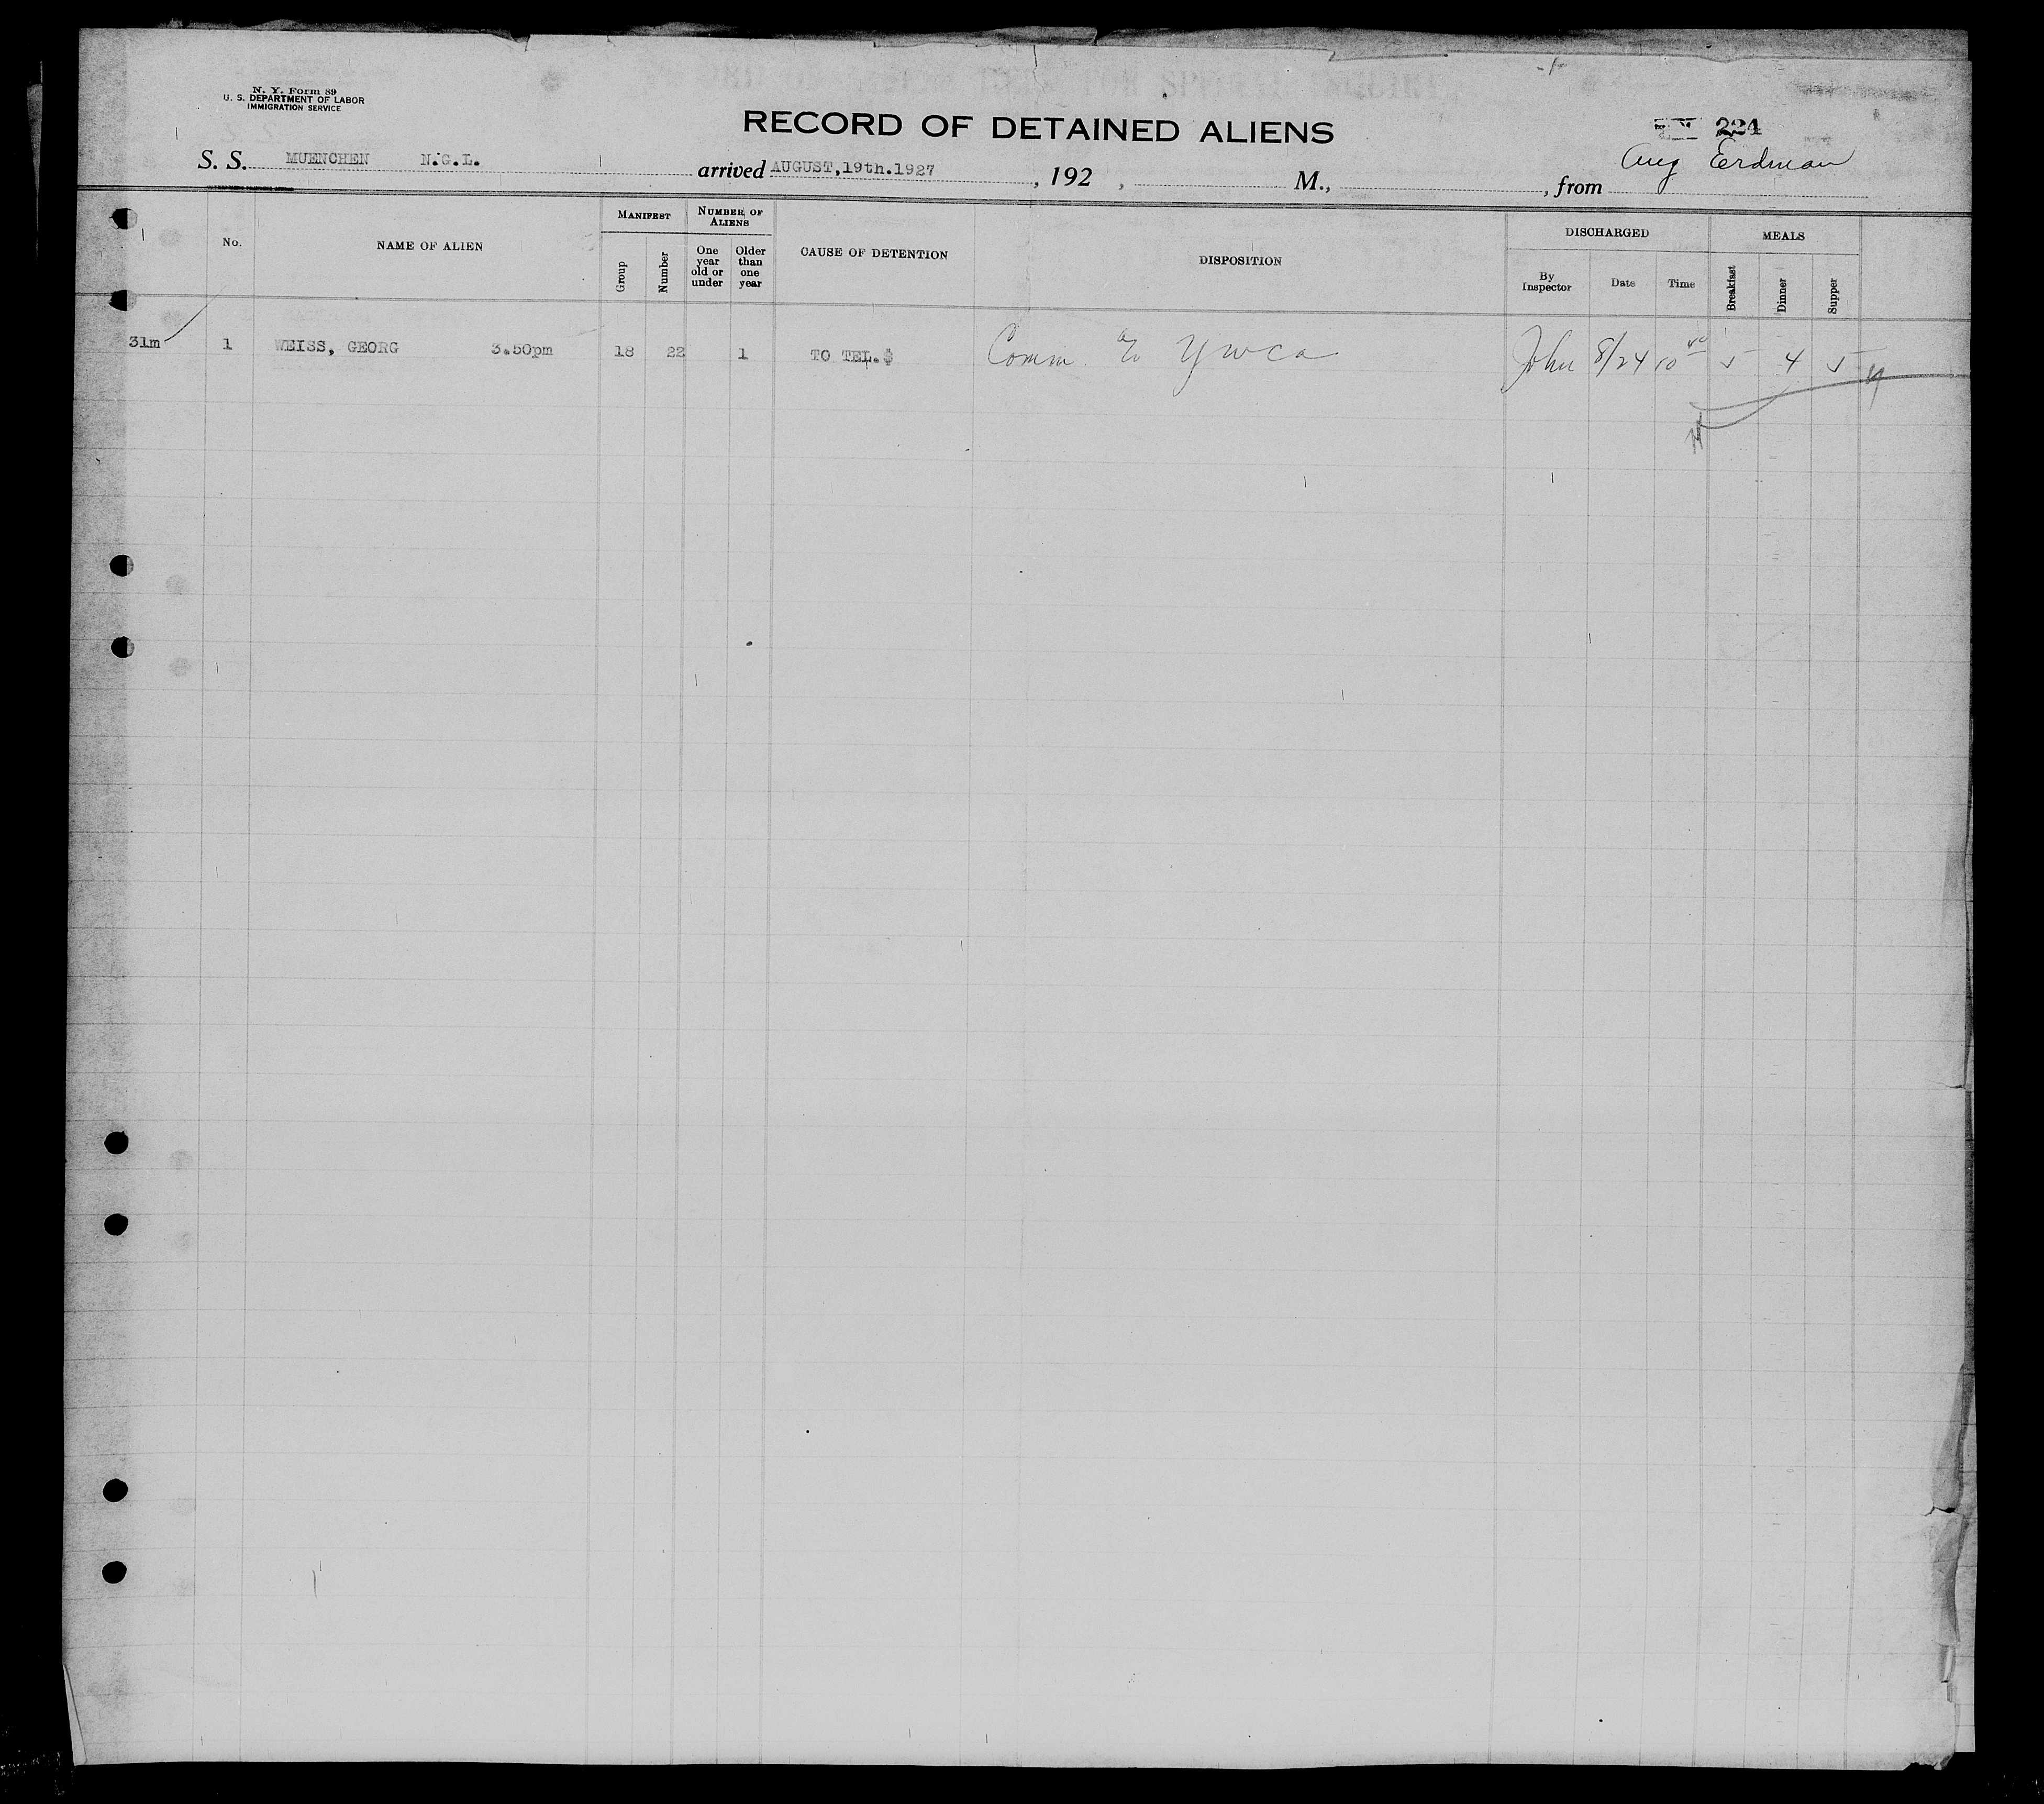 N. Y. Form 89
U. S. DEPARTMENT OF LABOR
IMMIGRATION SERVICE
RECORD OF DETAINED ALIENS
224
S. S. MUENCHEN N.G.L. arrived AUGUST,19th.1927 , 192 , M., , from Aug Erdman
No.
NAME OF ALIEN
MANIFEST
Group
Number
NUMBER OF ALIENS
One year old or under
Older than one year
CAUSE OF DETENTION
DISPOSITION
DISCHARGED
By Inspector
Date
Time
MEALS
Breakfast
Dinner
Supper
31m 1 WEISS, GEORG 3.50pm 18 22 1 TO TEL.$ Comm. to YWCA John 8/24 10 40 5 4 5